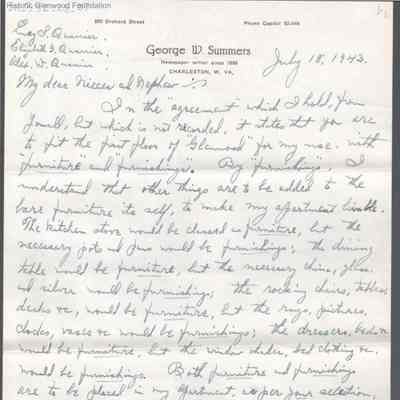 Historic Glenwood Foundation
890 Orchard Street
Phone Capitol 30-948
Lucy S. Quarrier.
Elizabeth S. Quarrier.
Alex. W. Quarrier
George W. Summers
Newspaper writer since 1888
CHARLESTON, W. VA.
July 18, 1943.
My dear Nieces and Nephew :-
In the agreement which I hold, from
you all, but which is not recorded, it states that you are
to fit the first floor of Glenwood for my use with
"furniture" and "furnishings". By "furnishings", I
understand that other things are to be added to the
bare furniture its self, to make my apartment livable.
The kitchen stove would be classed as furniture, but the
necessary pots and pans would be furnishings; the dining
table would be furniture, but the necessary china, glass
and silver would be furnishings; the rocking chairs, tables,
desks &c, would be furniture, but the rugs, pictures,
clocks, vases &c would be furnishings; the dressers, beds &c
would be furniture, but the window shades, bed clothing &c.
would be furnishings. Both furniture and furnishings
are to be placed in my apartment, as per your selection,